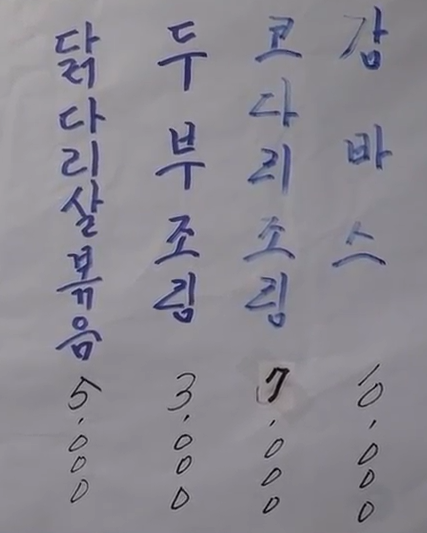 닭다리살볶음 5,000
두부조림 3,000
코다리조림 7,000
감바스 10,000